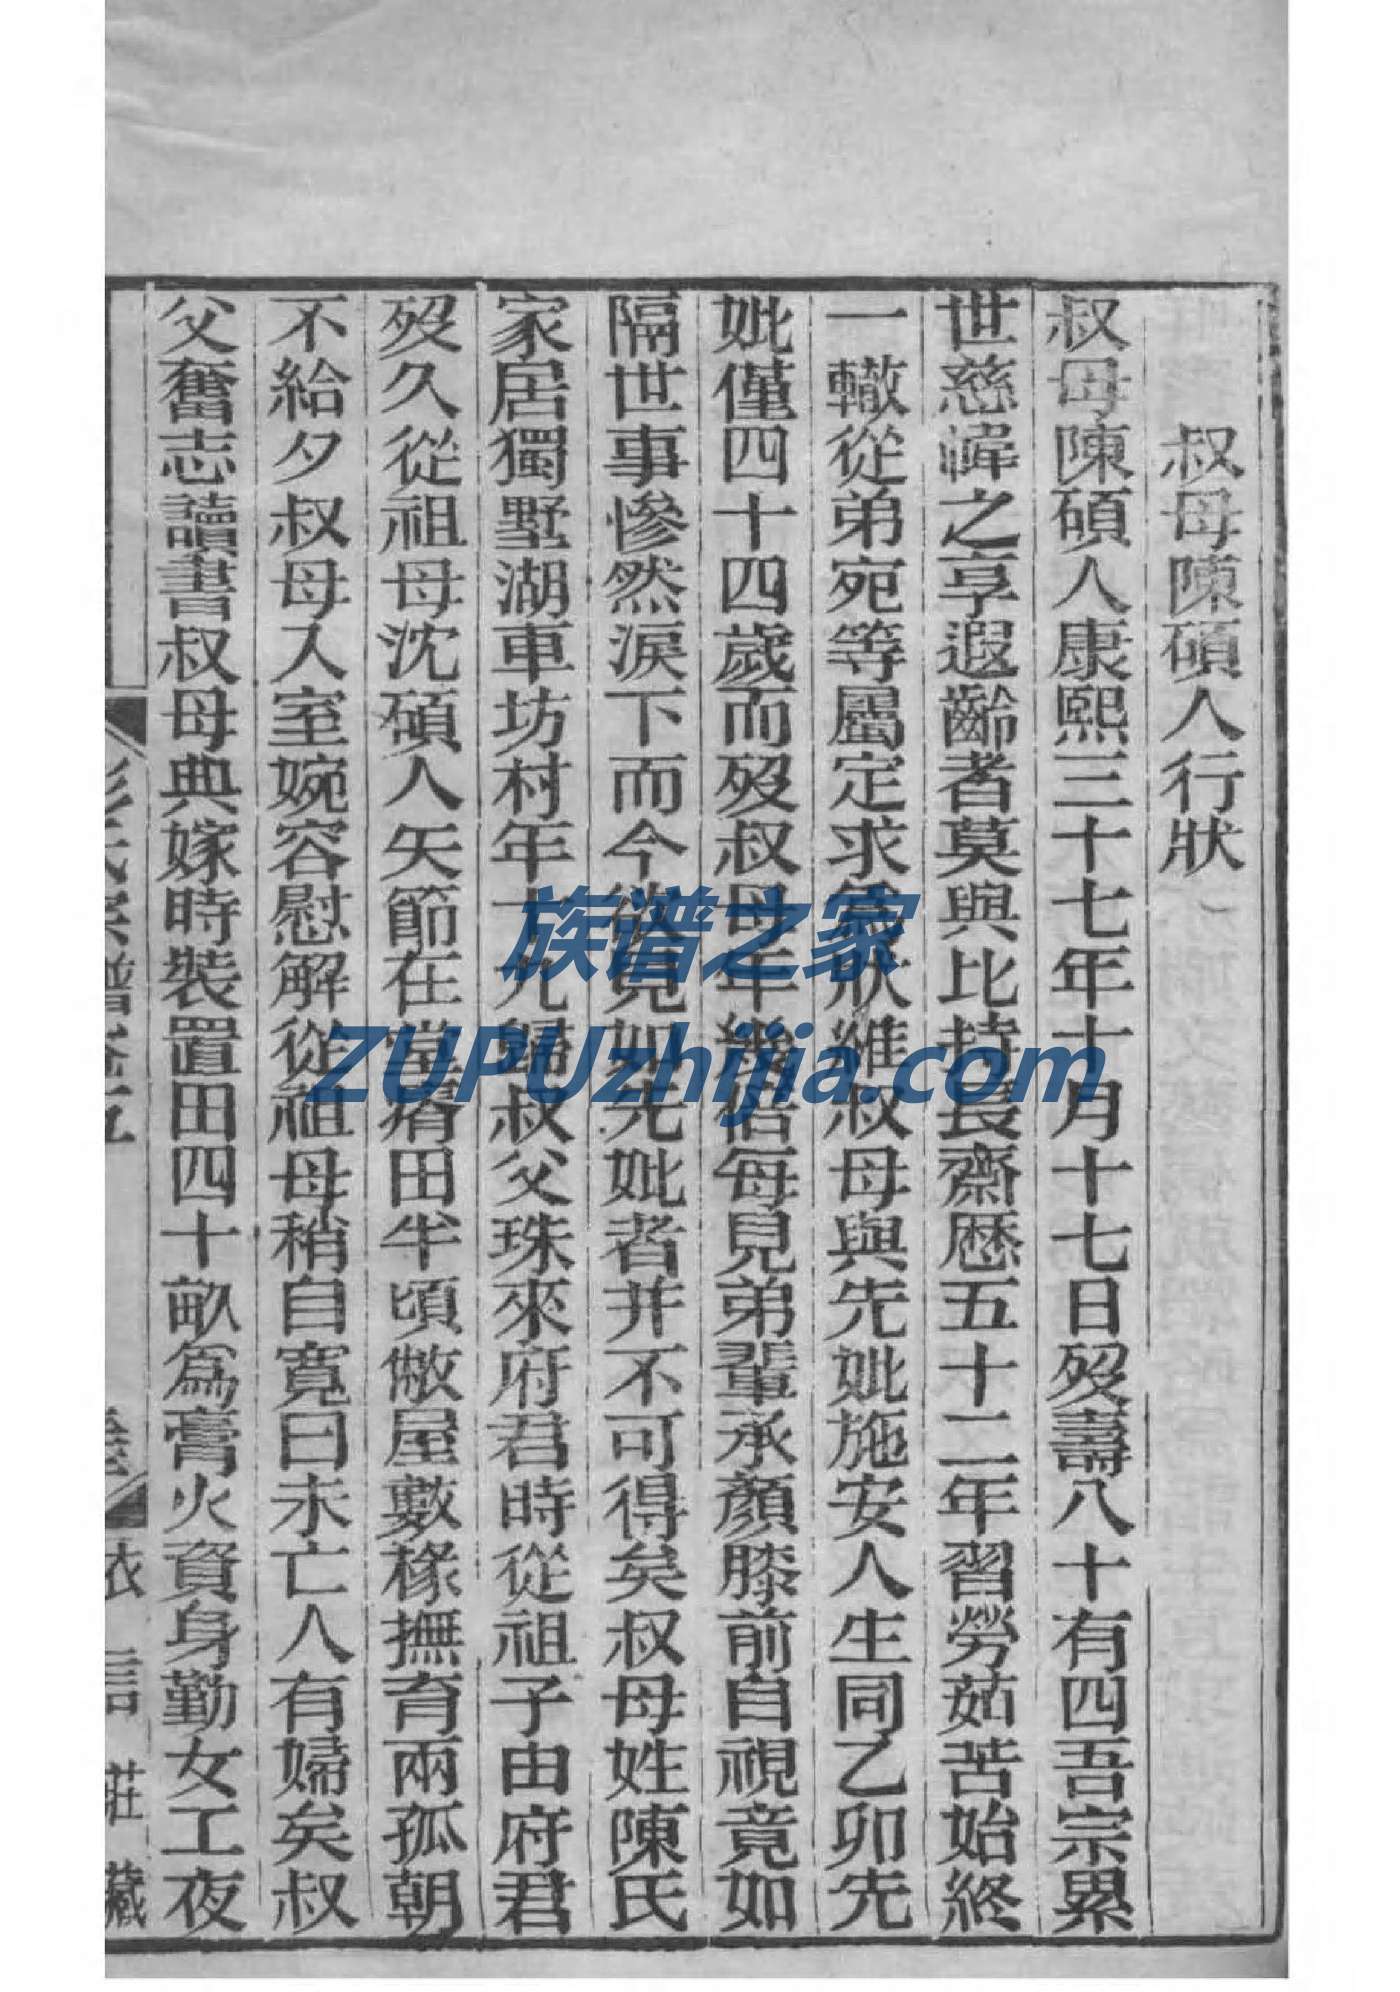 叔母陳碩人行狀
叔母陳碩人康熙三十七年十月十七日歿壽八十有四吾宗累
世慈幃之享遐齡者莫與比持長齋歷五十二年習勞茹苦始終
一轍從弟宛等屬定求爲狀維叔母與先妣施安人生同乙卯先
妣僅四十四歲而歿叔母年幾倍每見弟輩承顏膝前自視竟如
隔世事慘然淚下而今欲見如先妣者并不可得矣叔母姓陳氏
家居獨墅湖車坊村年十九歸叔父珠來府君時從祖子由府君
歿久從祖母沈碩人矢節在堂瘠田半頃敝屋數椽撫育兩孤朝
不給夕叔母入室婉容慰解從祖母稍自寬曰未亡人有婦矣叔
父奮志讀書叔母典嫁時裝置田四十畝爲膏火資身勤女工夜
彭氏宗譜卷五
衣言莊藏
族谱之家
ZUPUzhijia.com